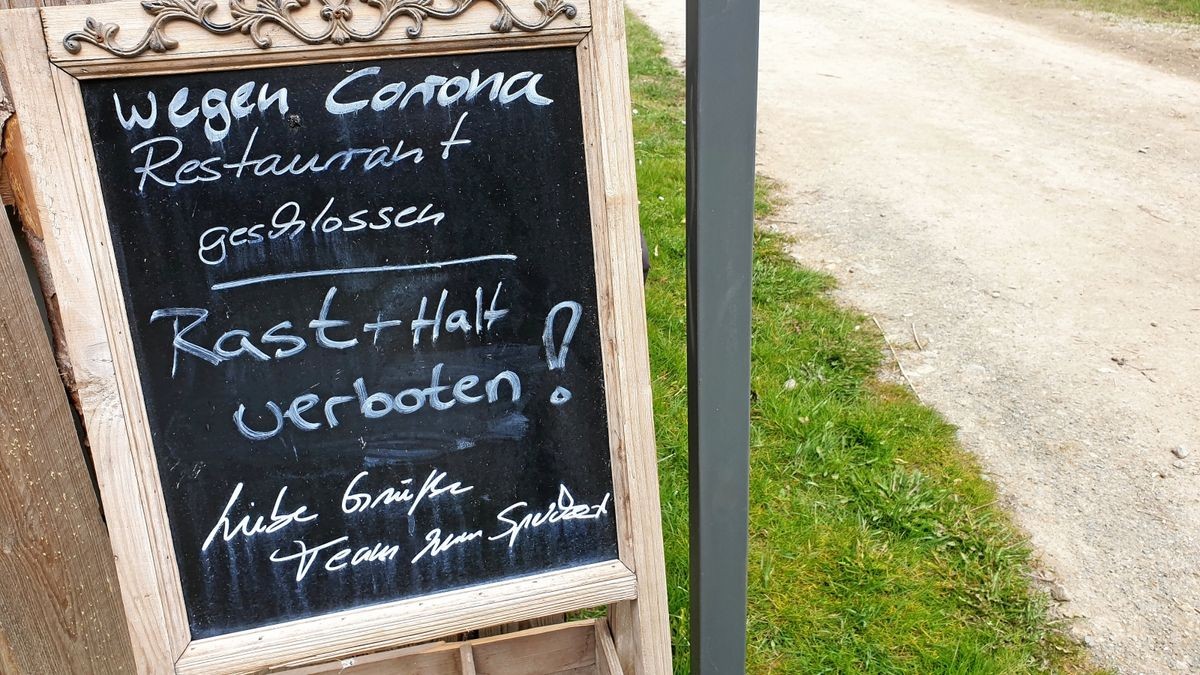 Wegen Corona
Restaurant
geschlossen
Rast + Halt
verboten!
Liebe Grüße
Team zum